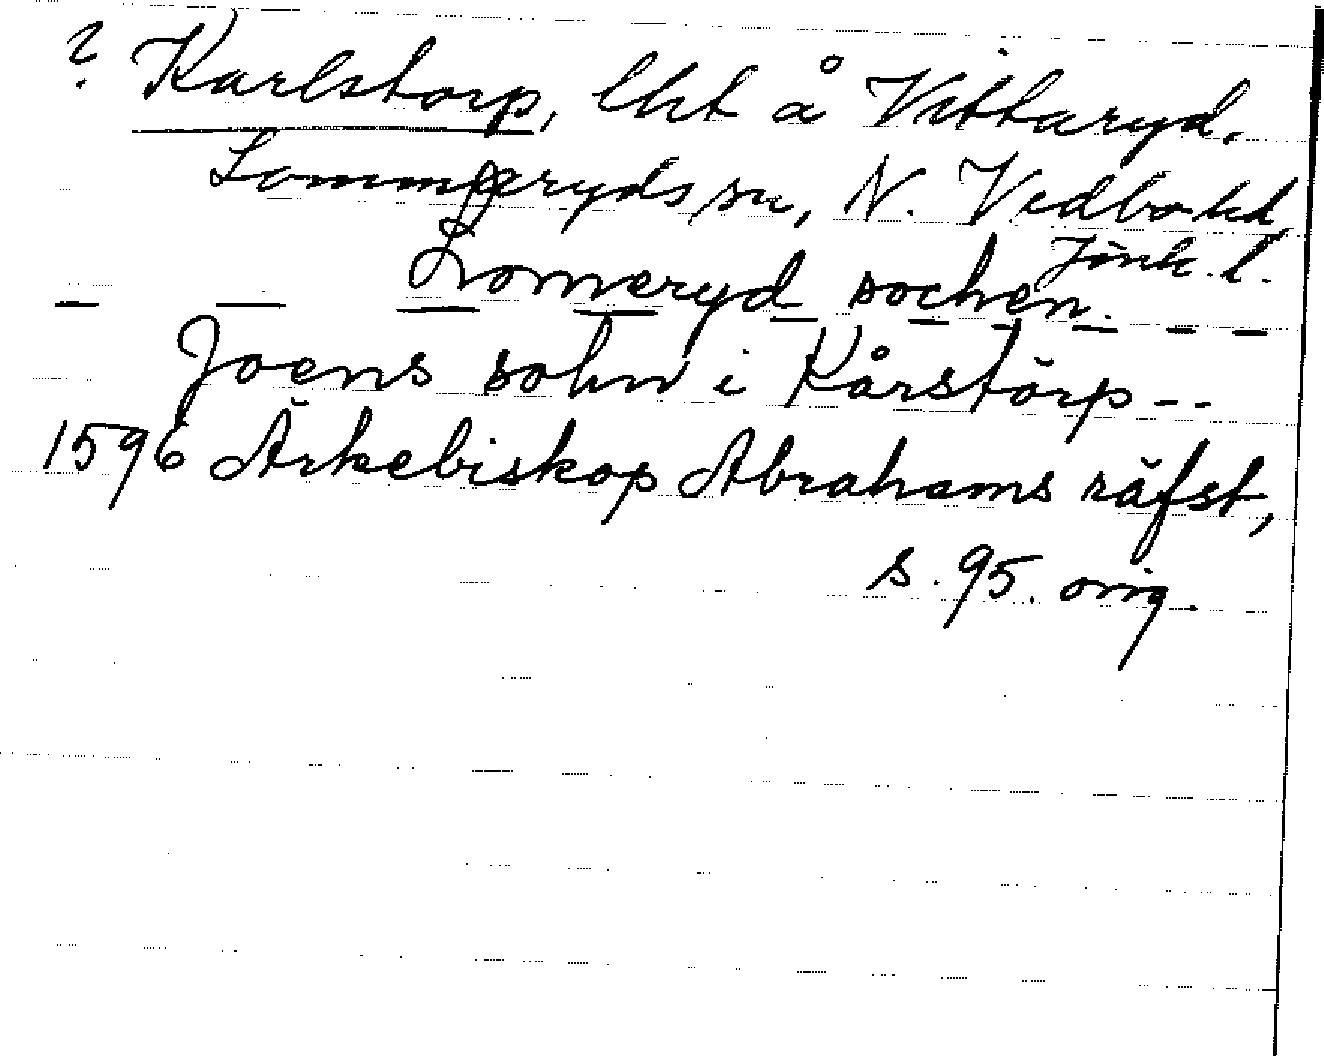 ? Karlstorp, lht å Vittaryd.
Lommeryds sn, N. Vedbo hd
Jönk. l.
Lomeryd sochen.
Joens sohn i Kårstörp --
1596 Ärkebiskop Abrahams räfst,
s. 95. orig.